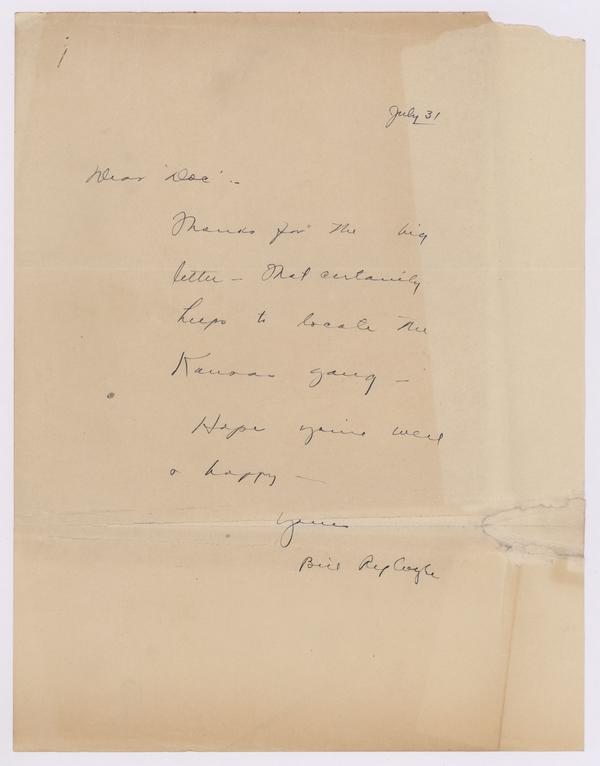 July 31
Dear 'Doc' --
Thanks for the big
letter - That certainly
helps to locate the
Kansas gang -
Hope you're well
& happy -
Yours
Bill